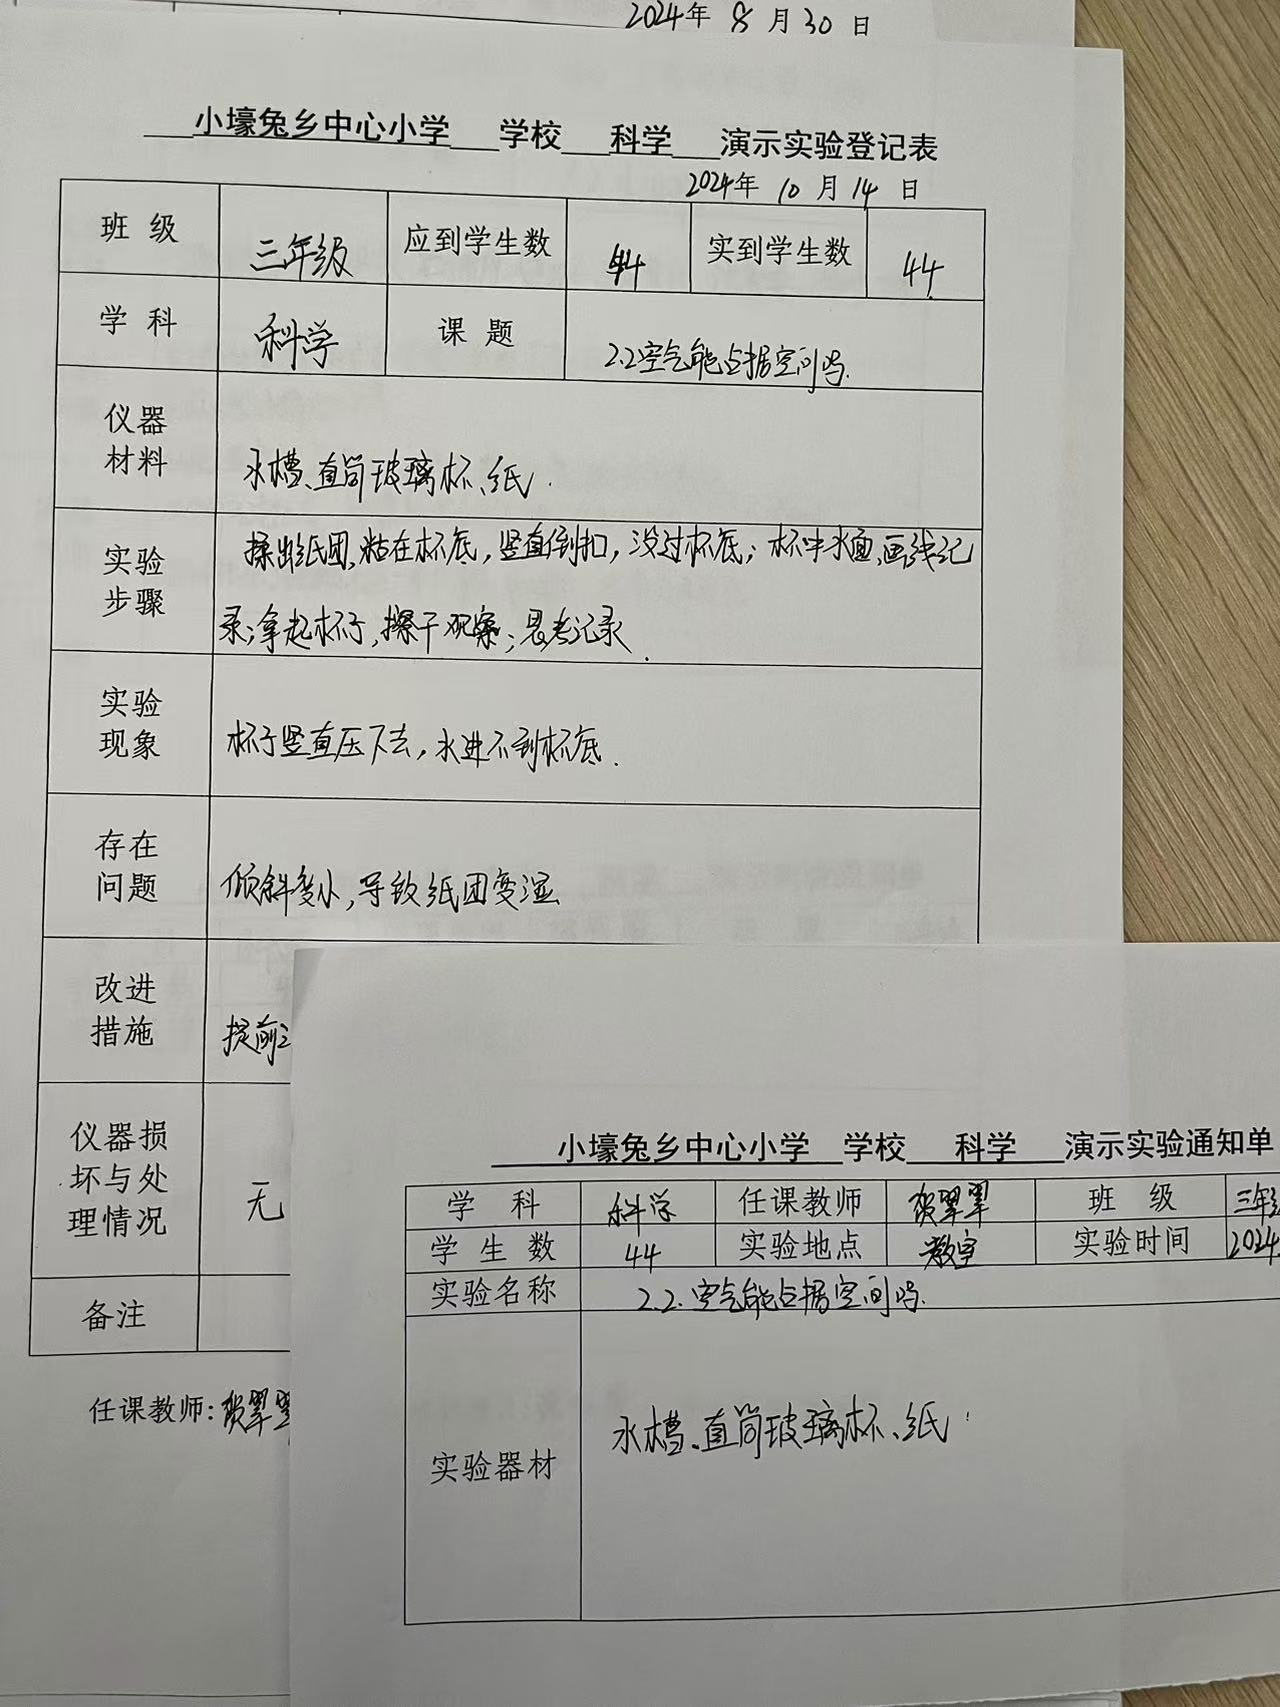 2024年 8 月 30 日
小壕兔乡中心小学 学校 科学 演示实验登记表
2024年 10 月 14 日
班 级 三年级 应到学生数 44 实到学生数 44
学 科 科学 课 题 2.2空气能占据空间吗.
仪器材料 水槽、直筒玻璃杯、纸.
实验步骤 揉出纸团,粘在杯底,竖直倒扣,没过杯底;杯中水面,画线记
录;拿起杯子,擦干观察;思考记录.
实验现象 杯子竖直压下去,水进不到杯底.
存在问题 倾斜变小,导致纸团变湿
改进措施 提前
仪器损坏与处理情况 无
备注
任课教师:贺翠
小壕兔乡中心小学 学校 科学 演示实验通知单
学 科 科学 任课教师 贺翠翠 班 级 三年
学 生 数 44 实验地点 教室 实验时间 2024
实验名称 2.2.空气能占据空间吗.
实验器材 水槽、直筒玻璃杯、纸.